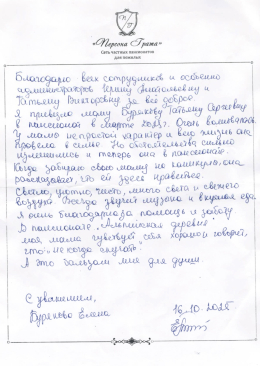 «Персона Грата»
Сеть частных пансионатов
для пожилых
Благодарю всех сотрудников и особенно
администраторов Ирину Анатольевну и
Татьяну Викторовну за всё доброе.
Я привезла маму Бурякову Татьяну Сергеевну
в пансионат в марте Очень волновалась.
У мамы непростой характер и всю жизнь она
провела в селе. Но обстоятельства сильно
изменились и теперь она в пансионате.
Когда забираю свою маму на каникулы, она
рассказывает, что ей здесь нравится.
Светло, уютно, чисто, много света и свежего
воздуха. Всегда звучит музыка и вкусная еда.
Я очень благодарна за помощь и заботу
В пансионате "Альпийская деревня"
моя мама чувствует себя хорошо и говорит,
что некогда скучать.
А это бальзам мне для души.
С уважением,
Бурякова Елена
16.10.2025